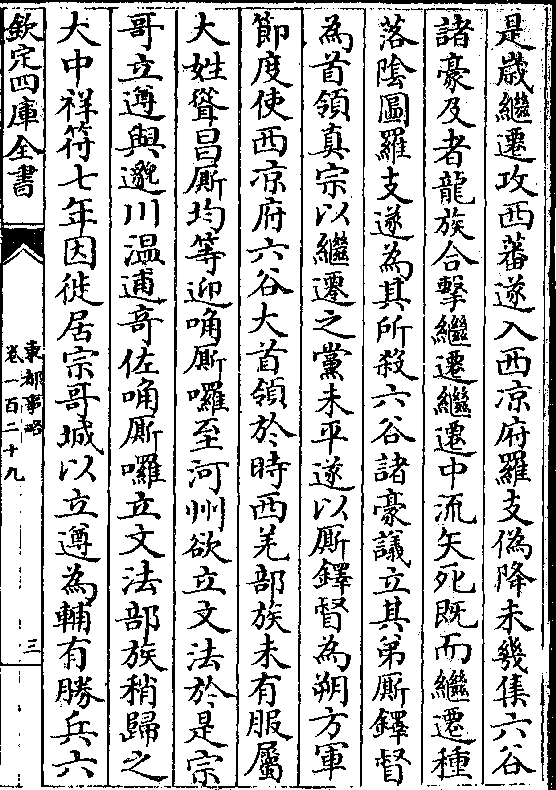 是歲繼遷攻西蕃遂入西凉府羅支偽降未幾集六谷
諸豪及者龍族合擊繼遷繼遷中流矢死既而繼遷種
落陰圖羅支遂為其所殺六谷諸豪議立其弟厮鐸督
為首領真宗以繼遷之黨未平遂以厮鐸督為朔方軍
節度使西凉府六谷大首領於時西羌部族未有服屬
大姓聳昌厮均等迎唃厮囉至河州欲立文法於是宗
哥立遵與邈川温逋竒佐唃厮囉立文法部族稍歸之
大中祥符七年因徙居宗哥城以立遵為輔有勝兵六
欽定四庫全書
東都事略
卷一百二十九
三